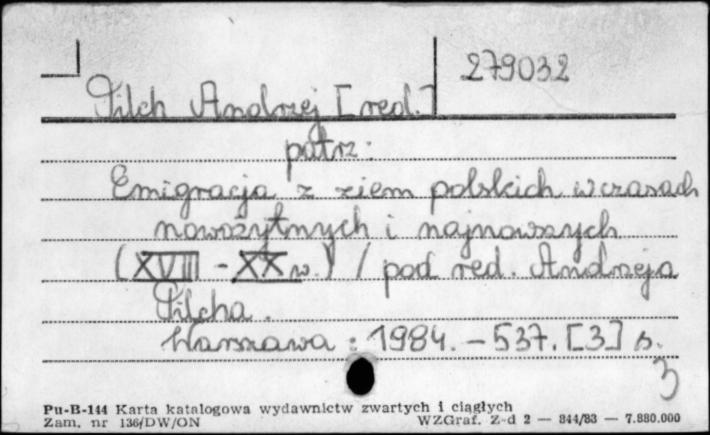 279032
Pilch Andrzej [red.]
patrz:
Emigracja z ziem polskich w czasach
nowożytnych i najnowszych
(XVIII - XX w.) / pod red. Andrzeja
Pilcha.
Warszawa : 1984. - 537. [3] s.
3
Pu-B-144 Karta katalogowa wydawnictw zwartych i ciągłych
Zam. nr 136/DW/ON WZGraf. Z-d 2 — 844/83 — 7.880.000